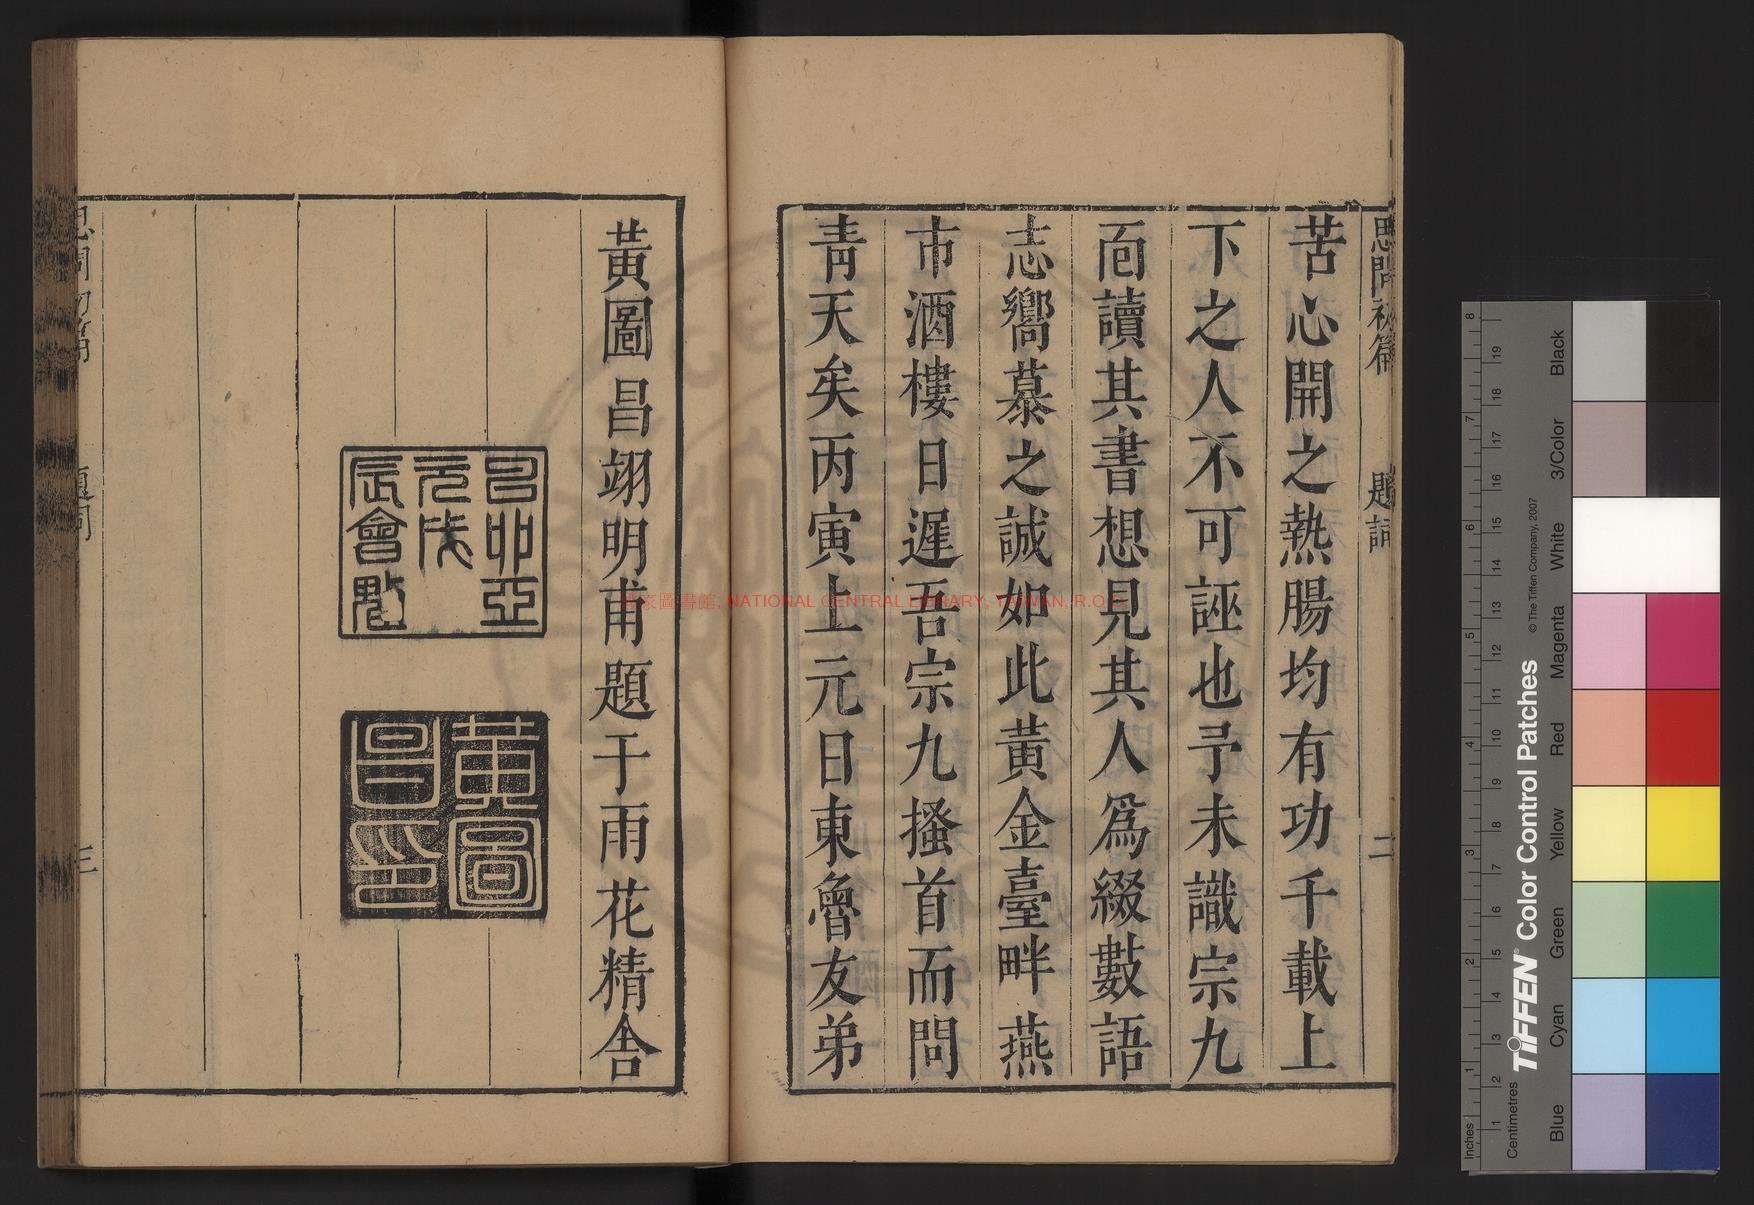 思問初篇 題詞 二
苦心開之熱腸均有功千載上
下之人不可誣也予未識宗九
而讀其書想見其人爲綴數語
志嚮慕之誠如此黃金臺畔燕
市酒樓日遲吾宗九搔首而問
靑天矣丙寅上元日東魯友弟
黃圖昌翊明甫題于雨花精舍
己卯亞
元戊
辰會魁
黃圖
昌印
思問初篇 題詞 三
國家圖書館, NATIONAL CENTRAL LIBRARY, TAIWAN, R.O.C.
Inches
1 2 3 4 5 6 7 8
Centimetres
1 2 3 4 5 6 7 8 9 10 11 12 13 14 15 16 17 18 19
TIFFEN® Color Control Patches
© The Tiffen Company, 2007
Blue Cyan Green Yellow Red Magenta White 3/Color Black